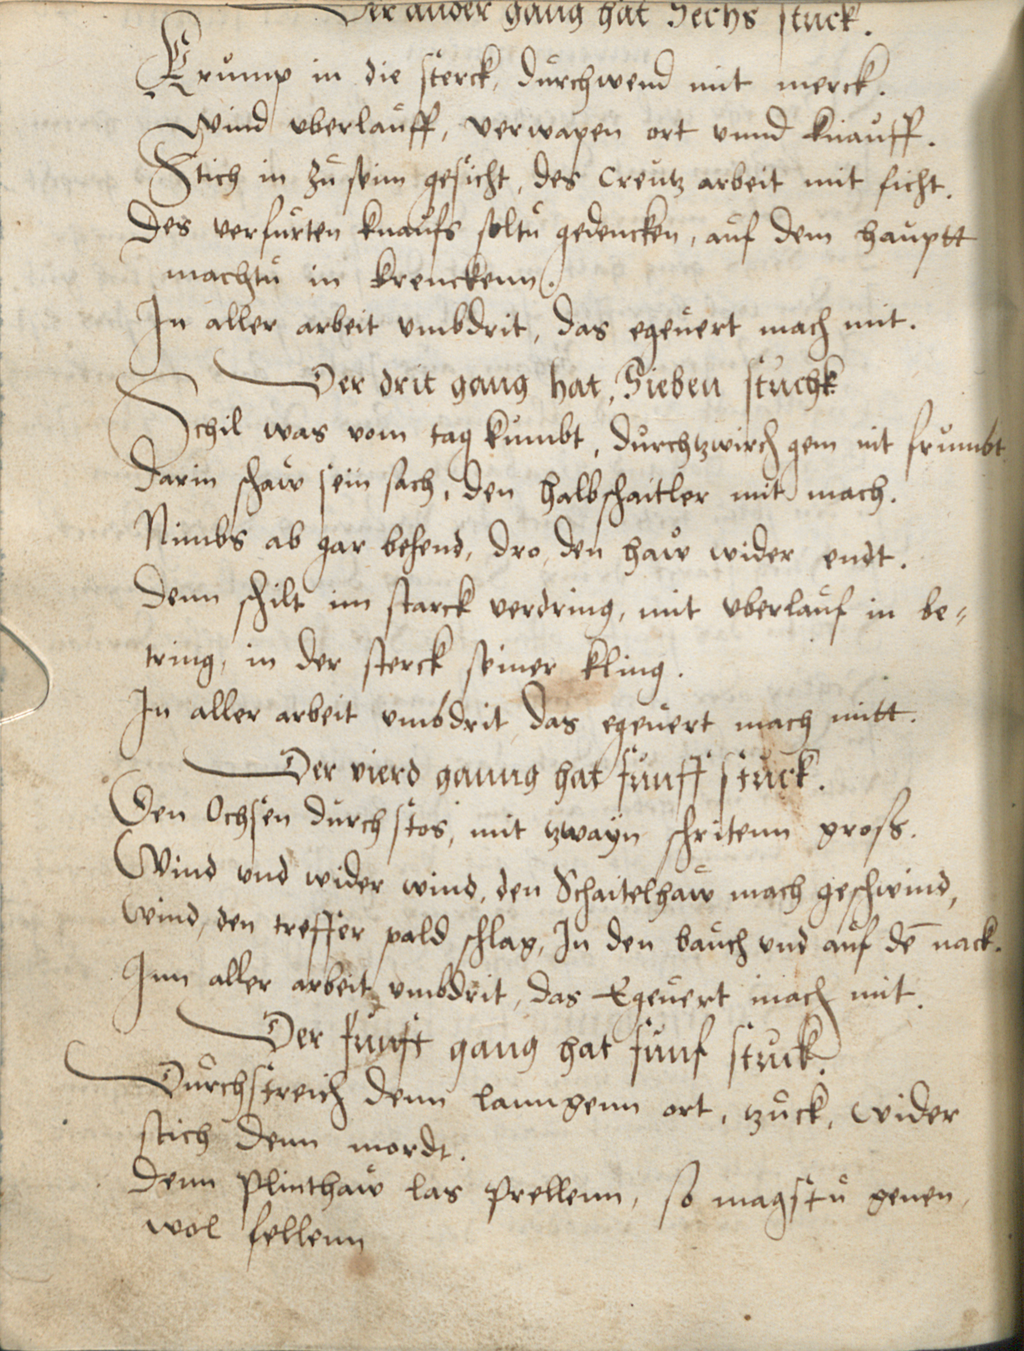 Der ander gang hat Sechs stuck.
Krump in die sterck, durchwend mit merck.
Wind vberlauff, verwapen ort vnnd knauff.
Stich in zu seim gesicht, des Creutz arbeit mit ficht.
Des verfurten knaufs soltu gedencken, auf dem hauptt
machtu in krenckenn.
In aller arbeit vmbdrit, das egeuert mach mit.
Der drit gang hat, Sieben stuchk
Schil was vom tag kumbt, durchtzwirch gem nit frumbt
Darin schaw sein sach, den halbschaitler mit mach.
Nimbs ab gar behend, dro, den haw wider endt.
Denn schilt im starck verdring, mit vberlauf in be-
tring, in der sterck seiner kling.
In aller arbeit vmbdrit das egeuert mach mitt.
Der vierd ganng hat funff stuck.
Den Ochsen durchstos, mit tzwayn schritenn gross.
Wind vnd wider wind, den Schaitelhaw mach geschwind,
Wind, den treffer pald schlag, In den bauch vnd auf dē nack.
Inn aller arbeit vmbdrit, das Egeuert mach mit.
Der funft gang hat funf stuck.
Durchstreich denn lanngenn ort, tzuck, wider
stich denn mordt.
Denn Plinthaw las Prellenn, so magstu genen
wol fellenn